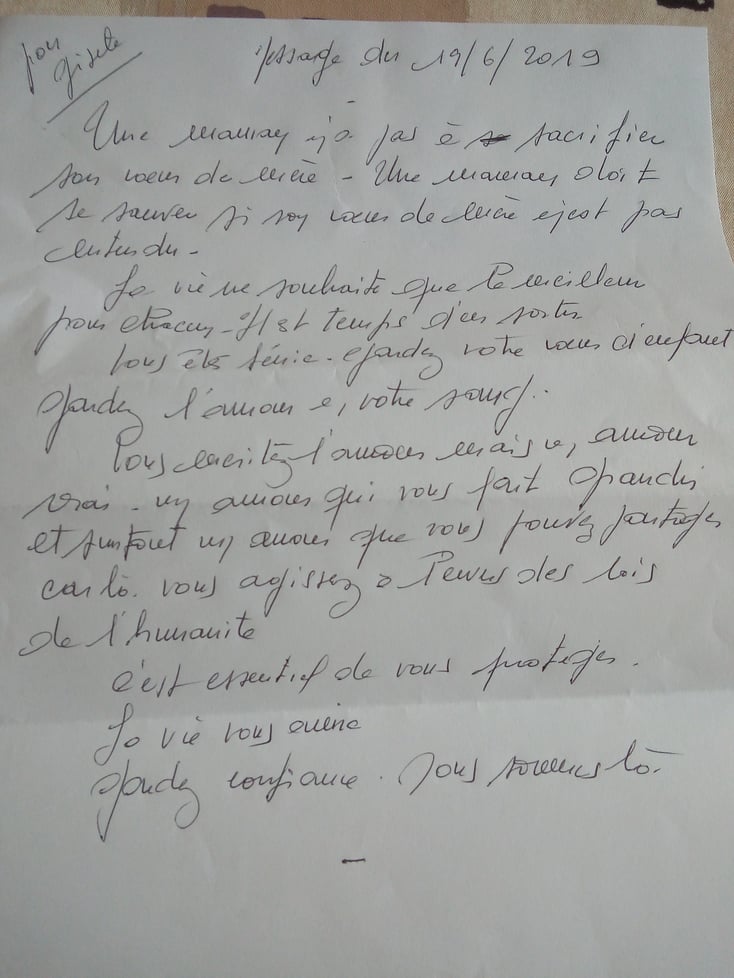 pour
Gisele
Message du 19/6/2019
Une maman n'a pas à se sacrifier
son coeur de mère - Une maman doit
se sauver si son coeur de mère n'est pas
entendu -
La vie ne souhaite que le meilleur
pour chacun - Il est temps d'en sortir
Vous êtes bénie - Gardez votre coeur d'enfant
Gardez l'amour en votre sang.
Vous méritez l'amour mais un amour
vrai - un amour qui vous fait grandir
et surtout un amour que vous pouvez partager
car là vous agissez à l'envers des lois
de l'humanité
C'est essentiel de vous protéger.
La vie vous aime
Gardez confiance. Nous sommes là.